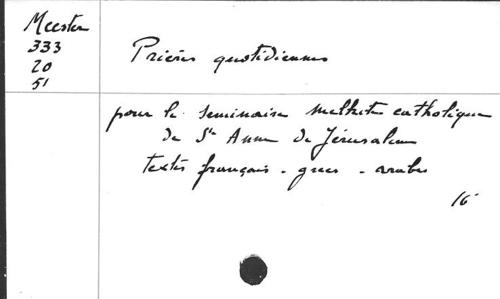 Meester
333
20
51
Prières quotidiennes
pour le séminaire melkite catholique
de Ste Anne de Jérusalem
textes français - grecs - arabes
16